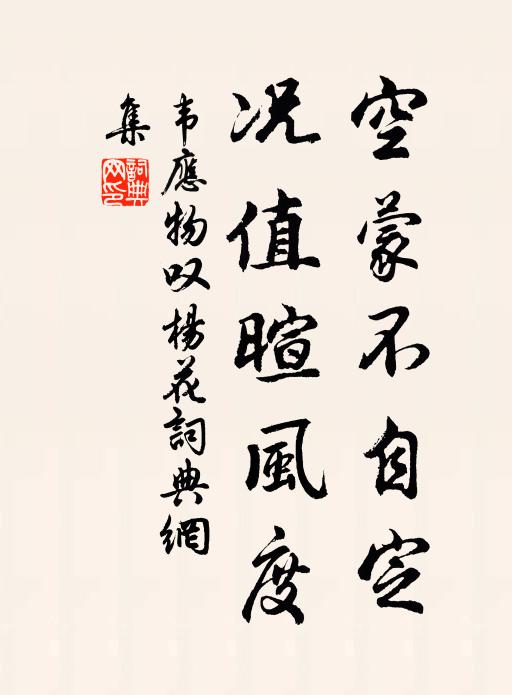 空蒙不自定
况值暄風度
韦應物叹楊花詞典網
集
詞典網印